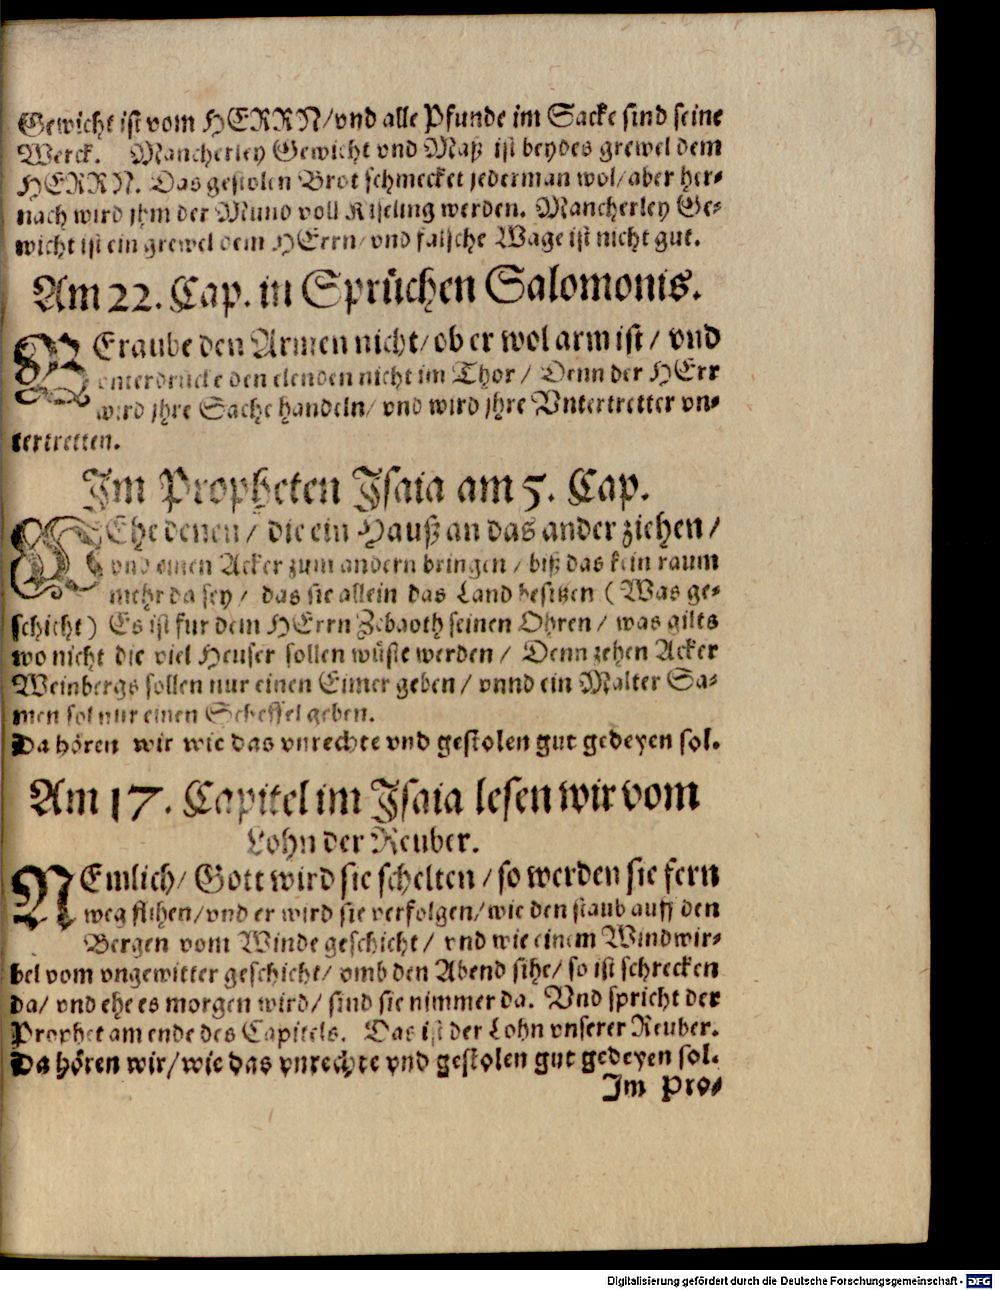 78
Gewicht ist vom HERRN/vnd alle Pfunde im Sacke sind seine
Werck. Mancherley Gewicht vnd Maß ist beydes grewel dem
HERRN. Das gestolen Brot schmecket jederman wol/aber her-
nach wird jhm der Mund voll Kiseling werden. Mancherley Ge-
wicht ist ein grewel dem HErrn/vnd falsche Wage ist nicht gut.
Am 22. Cap. in Sprüchen Salomonis.
BEraube den Armen nicht/ob er wol arm ist/vnd
vnterdrücke den elenden nicht im Thor/Denn der HErr
wird jhre Sache handeln/vnd wird jhre Vntertretter vn-
tertretten.
Im Propheten Jsaia am 5. Cap.
WEhe denen/die ein Hauß an das ander ziehen/
vnd einen Acker zum andern bringen/biß das kein raum
mehr da sey/das sie allein das Land besitzen (Was ge-
schicht) Es ist fur dem HErrn Zebaoth seinen Ohren/was gilts
wo nicht die viel Heuser sollen wüste werden/Denn zehen Acker
Weinbergs sollen nur einen Eimer geben/vnnd ein Malter Sa-
men sol nur einen Scheffel geben.
Da hören wir wie das vnrechte vnd gestolen gut gedeyen sol.
Am 17. Capitel im Jsaia lesen wir vom
Lohn der Reuber.
NEmlich/Gott wird sie schelten/so werden sie fern
weg flihen/vnd er wird sie verfolgen/wie den staub auff den
Bergen vom Winde geschicht/vnd wie einem Windwir-
bel vom vngewitter geschicht/vmb den Abend sihe/so ist schrecken
da/vnd ehe es morgen wird/sind sie nimmer da. Vnd spricht der
Prophet am ende des Capitels. Das ist der Lohn vnserer Reuber.
Da hören wir/wie das vnrechte vnd gestolen gut gedeyen sol.
Im Pro-
Digitalisierung gefördert durch die Deutsche Forschungsgemeinschaft - DFG